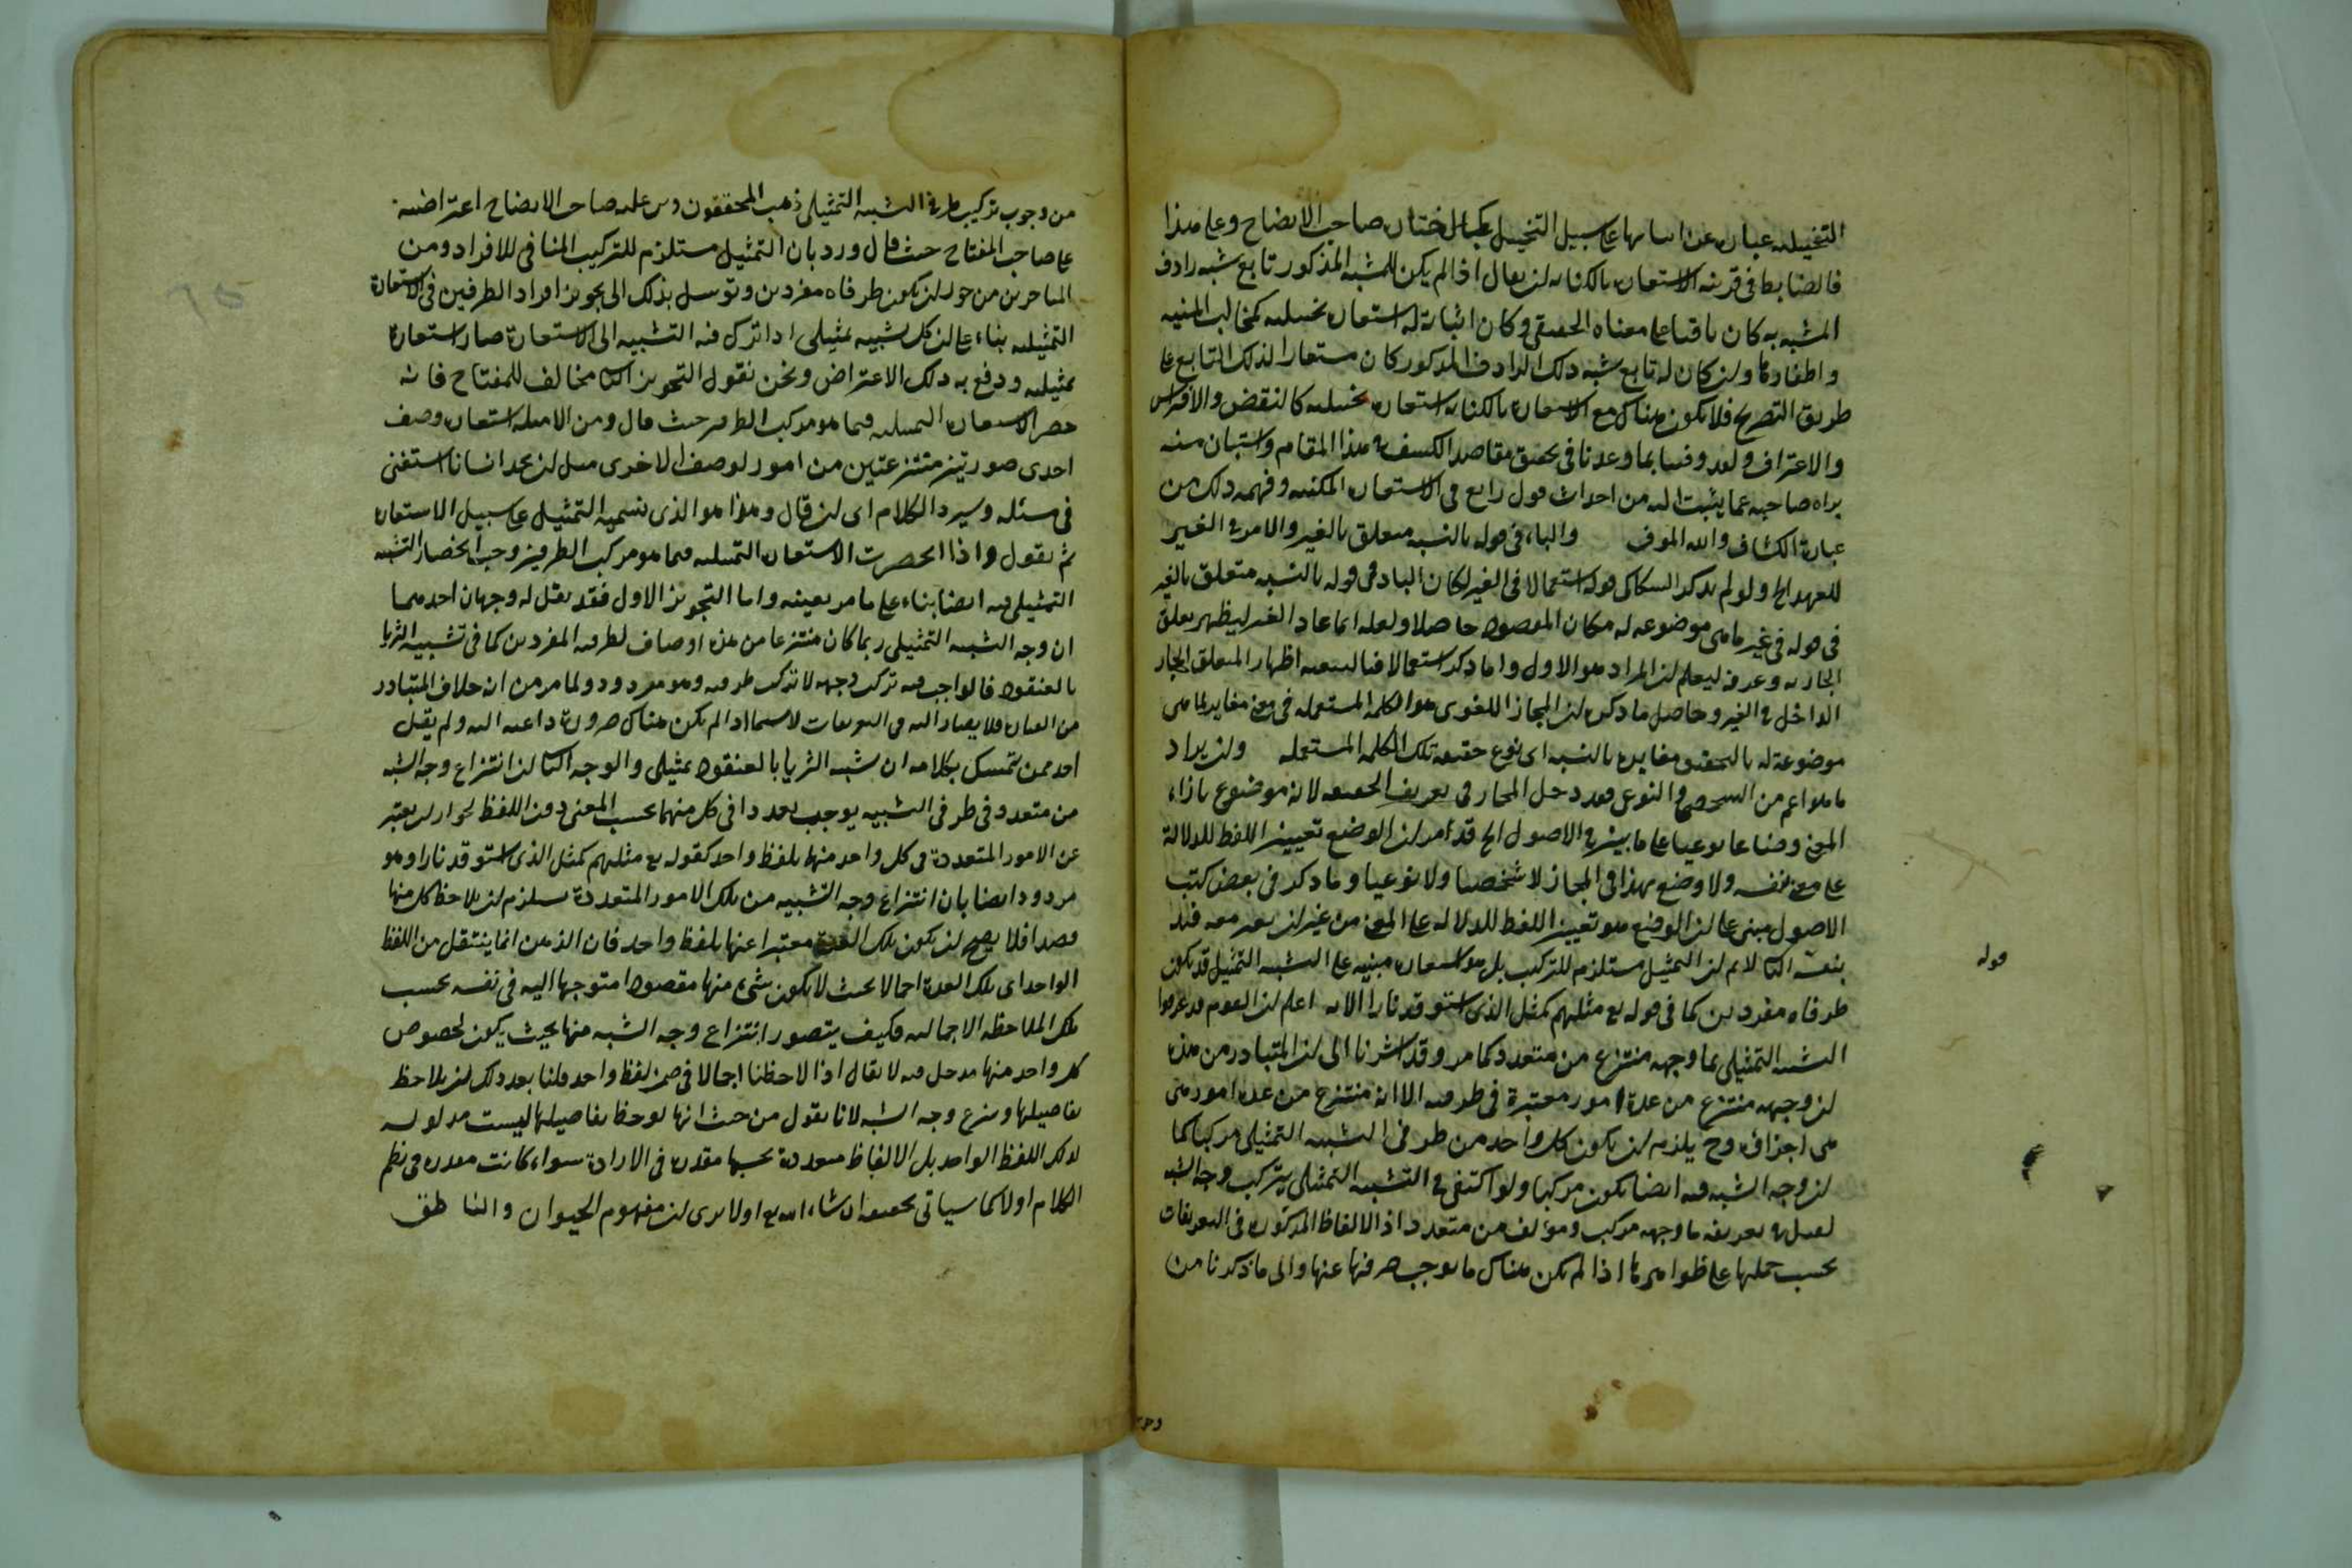 التخييلية عبارة عن اثباتها على سبيل التخييل كما اختاره صاحب الايضاح وعلى هذا
فالضابط في قرينة الاستعارة بالكناية ان يقال اذا لم يكن للمشبه المذكور تابع يشبه رادف
المشبه به كان باقيا على معناه الحقيقي وكان اثباته له استعارة تخييلية كمخالب المنية
واظفارها وان كان له تابع يشبه ذلك الرادف المذكور كان مستعارا لذلك التابع على
طريق التصريح فلا يكون هناك مع الاستعارة بالكناية استعارة تخييلية كالنقض والافتراس
والاغتراف ولقد وفينا بما وعدنا في تحقيق مقاصد الكشف في هذا المقام واستبان منه
براة صاحبه عما يثبت اليه من احداث قول رابع في الاستعارة المكنية وفهمه ذلك من
عبارة الكشاف والله الموفق والباء في قوله بالنسبة متعلق بالغير واللام في الغير
للعهد الخ ولو لم يذكر السكاكي قوله استعمالا في الغير لكان الباء في قوله بالنسبة متعلق بالغير
في قوله في غير ما هي موضوعة له مكان المقصود حاصلا ولعله انما عاد الغير ليظهر تعلق
الجار به وعرفه ليعلم ان المراد هو الاول واما ذكر استعمالا فبالتبعية اظهار المتعلق الجار
الداخل في الغير وحاصل ما ذكره ان المجاز اللغوي هو الكلمة المستعملة في معنى مغاير لما هي
موضوعة له بالتحقيق مغايرة بالنسبة الى نوع حقيقة تلك الكلمة المستعملة وان يراد
ما هو اعم من الشخصي والنوعي فقد دخل المجاز في تعريف الحقيقة لانه موضوع بازاء
المعنى وضعا نوعيا على ما بين في الاصول الخ قد مر ان الوضع تعيين اللفظ للدلالة
على معنى بنفسه ولا وضع بهذا في المجاز لا شخصيا ولا نوعيا وما ذكر في بعض كتب
الاصول مبني على ان الوضع هو تعيين اللفظ للدلالة على المعنى من غير ان يعتبر معه قيد
بنفسه الثالث لا نم ان التمثيل مستلزم للتركيب بل هو استعارة مبنية على التشبيه التمثيل قد يكون
قوله
طرفاه مفردين كما في قوله تع مثلهم كمثل الذي استوقد نارا الاية اعلم ان القوم قد عرفوا
التشبيه التمثيلي بما وجهه منتزع من متعدد كما مر وقد اشرنا الى ان المتبادر من هذه
ان وجهه منتزع من عدة امور معتبرة في طرفيه الا انه منتزع من عدة امور هي
هي اجزاؤه وح يلزم ان يكون كل واحد من طرفي التشبيه التمثيلي مركبا كما
ان وجه الشبه فيه ايضا يكون مركبا ولو اكتفى في التشبيه التمثيلي بتركيب وجه الشبه
لقيل في تعريفه ما وجهه مركب ومؤلف من متعدد اذ الالفاظ المذكورة في التعريفات
يجب حملها على ظواهرها اذا لم يكن هناك ما يوجب صرفها عنها والى ما ذكرنا من
من وجوب تركيب طرفي التشبيه التمثيلي ذهب المحققون وبنى عليه صاحب الايضاح اعتراضه
على صاحب المفتاح حيث قال ورد بان التمثيل مستلزم للتركيب المنافي للافراد ومن
المتاخرين من جوز ان يكون طرفاه مفردين وتوسل بذلك الى تجويز افراد الطرفين في الاستعارة
التمثيلية بناء على ان كل تشبيه تمثيلي اذا ترك فيه التشبيه الى الاستعارة صار استعارة
تمثيلية ودفع به ذلك الاعتراض ونحن نقول التجويز الثاني مخالف للمفتاح فانه
حصر الاستعارة التمثيلية فيما هو مركب الطرفين حيث قال ومن الامثلة استعارة وصف
احدى صورتين منتزعتين من امور لوصف الاخرى مثل ان تجد انسانا استفتى
في مسئلة وسرد الكلام الى ان قال وهذا هو الذي نسميه التمثيل على سبيل الاستعارة
ثم نقول واذا انحصرت الاستعارة التمثيلية فيما هو مركب الطرفين وجب انحصار التشبيه
التمثيلي فيه ايضا بناء على ما مر بعينه واما التجويز الاول فقد نقل له وجهان احدهما
ان وجه التشبيه التمثيلي ربما كان منتزعا من عدة اوصاف لطرفيه المفردين كما في تشبيه الثريا
بالعنقود فالواجب فيه تركب وجهه لا تركب طرفيه وهو مردود ولما مر من ان خلاف المتبادر
من العبارة فلا يصار اليه في التعريفات لا سيما اذا لم يكن هناك ضرورة داعية اليه ولم يقل
احد ممن يتمسك بكلامه ان تشبيه الثريا بالعنقود تمثيلي والوجه الثاني ان انتزاع وجه الشبه
من متعدد في طرفي التشبيه يوجب تعددا في كل منهما بحسب المعنى دون اللفظ لجواز ان يعبر
عن الامور المتعددة في كل واحد منها بلفظ واحد كقوله تع مثلهم كمثل الذي استوقد نارا وهو
مردود ايضا بان انتزاع وجه التشبيه من تلك الامور المتعددة يستلزم ان يلاحظ كل منها
قصدا فلا يصح ان يكون تلك العدة معتبرا عنها بلفظ واحد فان الذهن انما ينتقل من اللفظ
الواحد الى تلك العدة اجمالا بحيث لا يكون شيء منها مقصودا متوجها اليه في نفسه بحسب
تلك الملاحظة الاجمالية فكيف يتصور انتزاع وجه الشبه منها بحيث يكون لخصوص
كل واحد منها مدخل فيه لا يقال اذا لاحظنا اجمالا في ضمن لفظ واحد فلنا بعد ذلك ان نلاحظ
تفاصيلها وننتزع وجه الشبه لانا نقول من حيث انها لوحظ تفاصيلها ليست مدلوله
لذلك اللفظ الواحد بل الالفاظ متعددة بحسبها مقدرة في الارادة سواء كانت مقدرة في نظم
الكلام اولا كما سياتي تحقيقه ان شاء الله تع اولا يرى ان مفهوم الحيوان والناطق